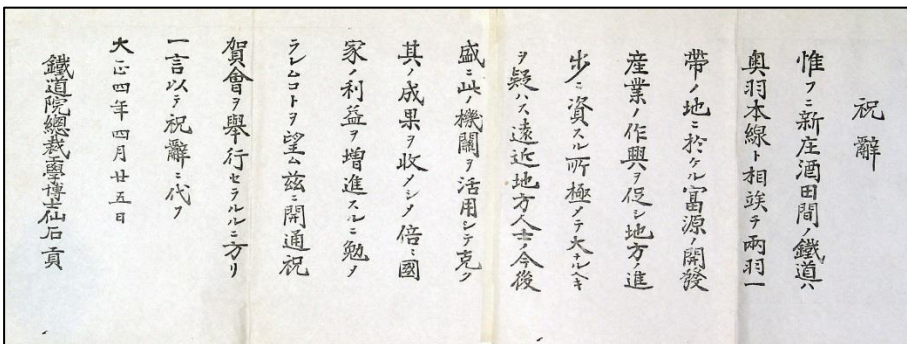 祝辭
惟フニ新庄酒田間ノ鐵道ハ
奥羽本線ト相竢テ兩羽一
帶ノ地ニ於ケル富源ノ開發
産業ノ作興ヲ促シ地方ノ進
步ニ資スル所極メテ大ナルヘキ
ヲ疑ハス遠近地方人士ノ今後
盛ニ此ノ機關ヲ活用シテ克ク
其ノ成果ヲ收メシメ倍〻國
家ノ利益ヲ增進スルニ勉メ
ラレムコトヲ望ム茲ニ開通祝
賀會ヲ舉行セラルルニ方リ
一言以テ祝辭ニ代フ
大正四年四月廿五日
鐵道院總裁工學博士仙石貢